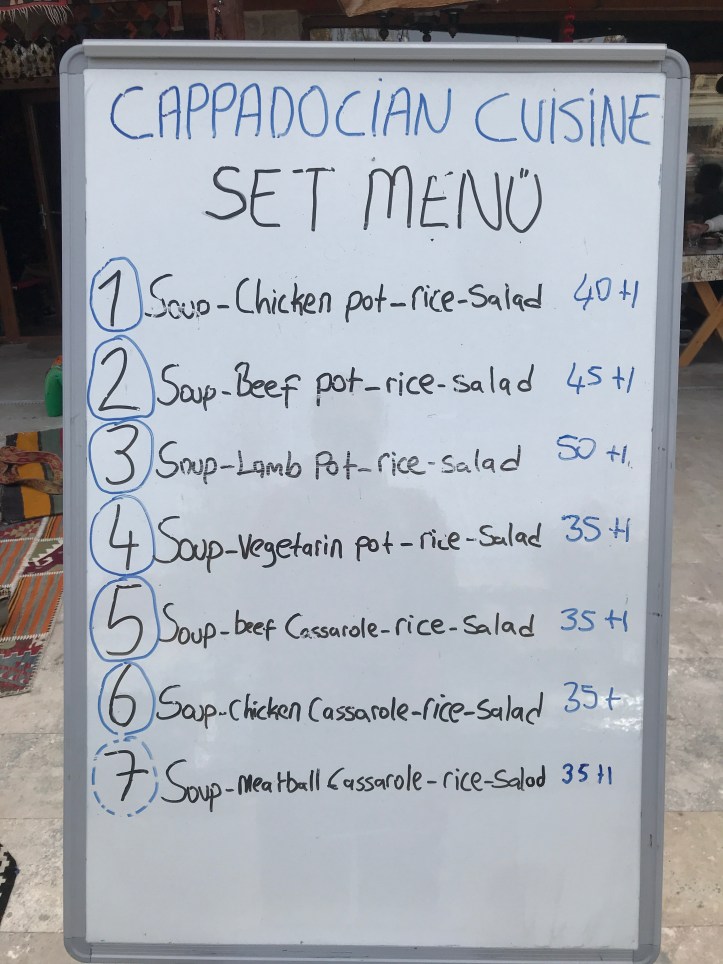 CAPPADOCIAN CUISINE
SET MENÜ
1 Soup-Chicken pot-rice-Salad 40 tl
2 Soup-Beef pot-rice-salad 45 tl
3 Soup-Lamb Pot-rice-salad 50 tl.
4 Soup-Vegetarin pot-rice-Salad 35 tl
5 Soup-beef Cassarole-rice-Salad 35 tl
6 Soup-Chicken Cassarole-rice-Salad 35 t
7 Soup-meatball Cassarole-rice-Salad 35 tl